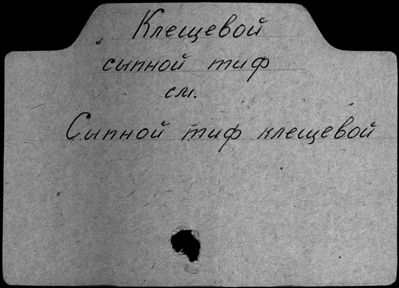 Клещевой
сыпной тиф
см.
Сыпной тиф клещевой